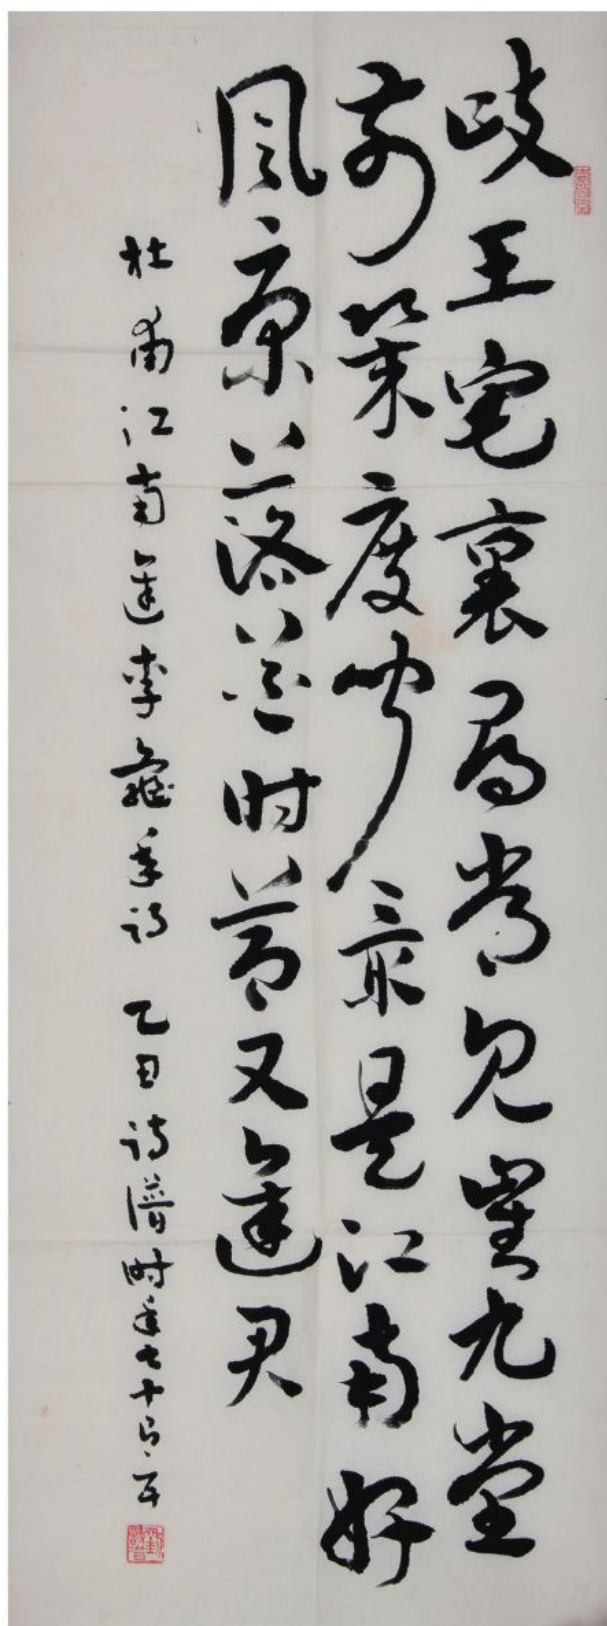 歧王宅裏尋常見崔九堂
前幾度聞最是江南好
風景落花时節又逢君
杜甫江南逢李龜年詩 乙丑 詩譜时年七十